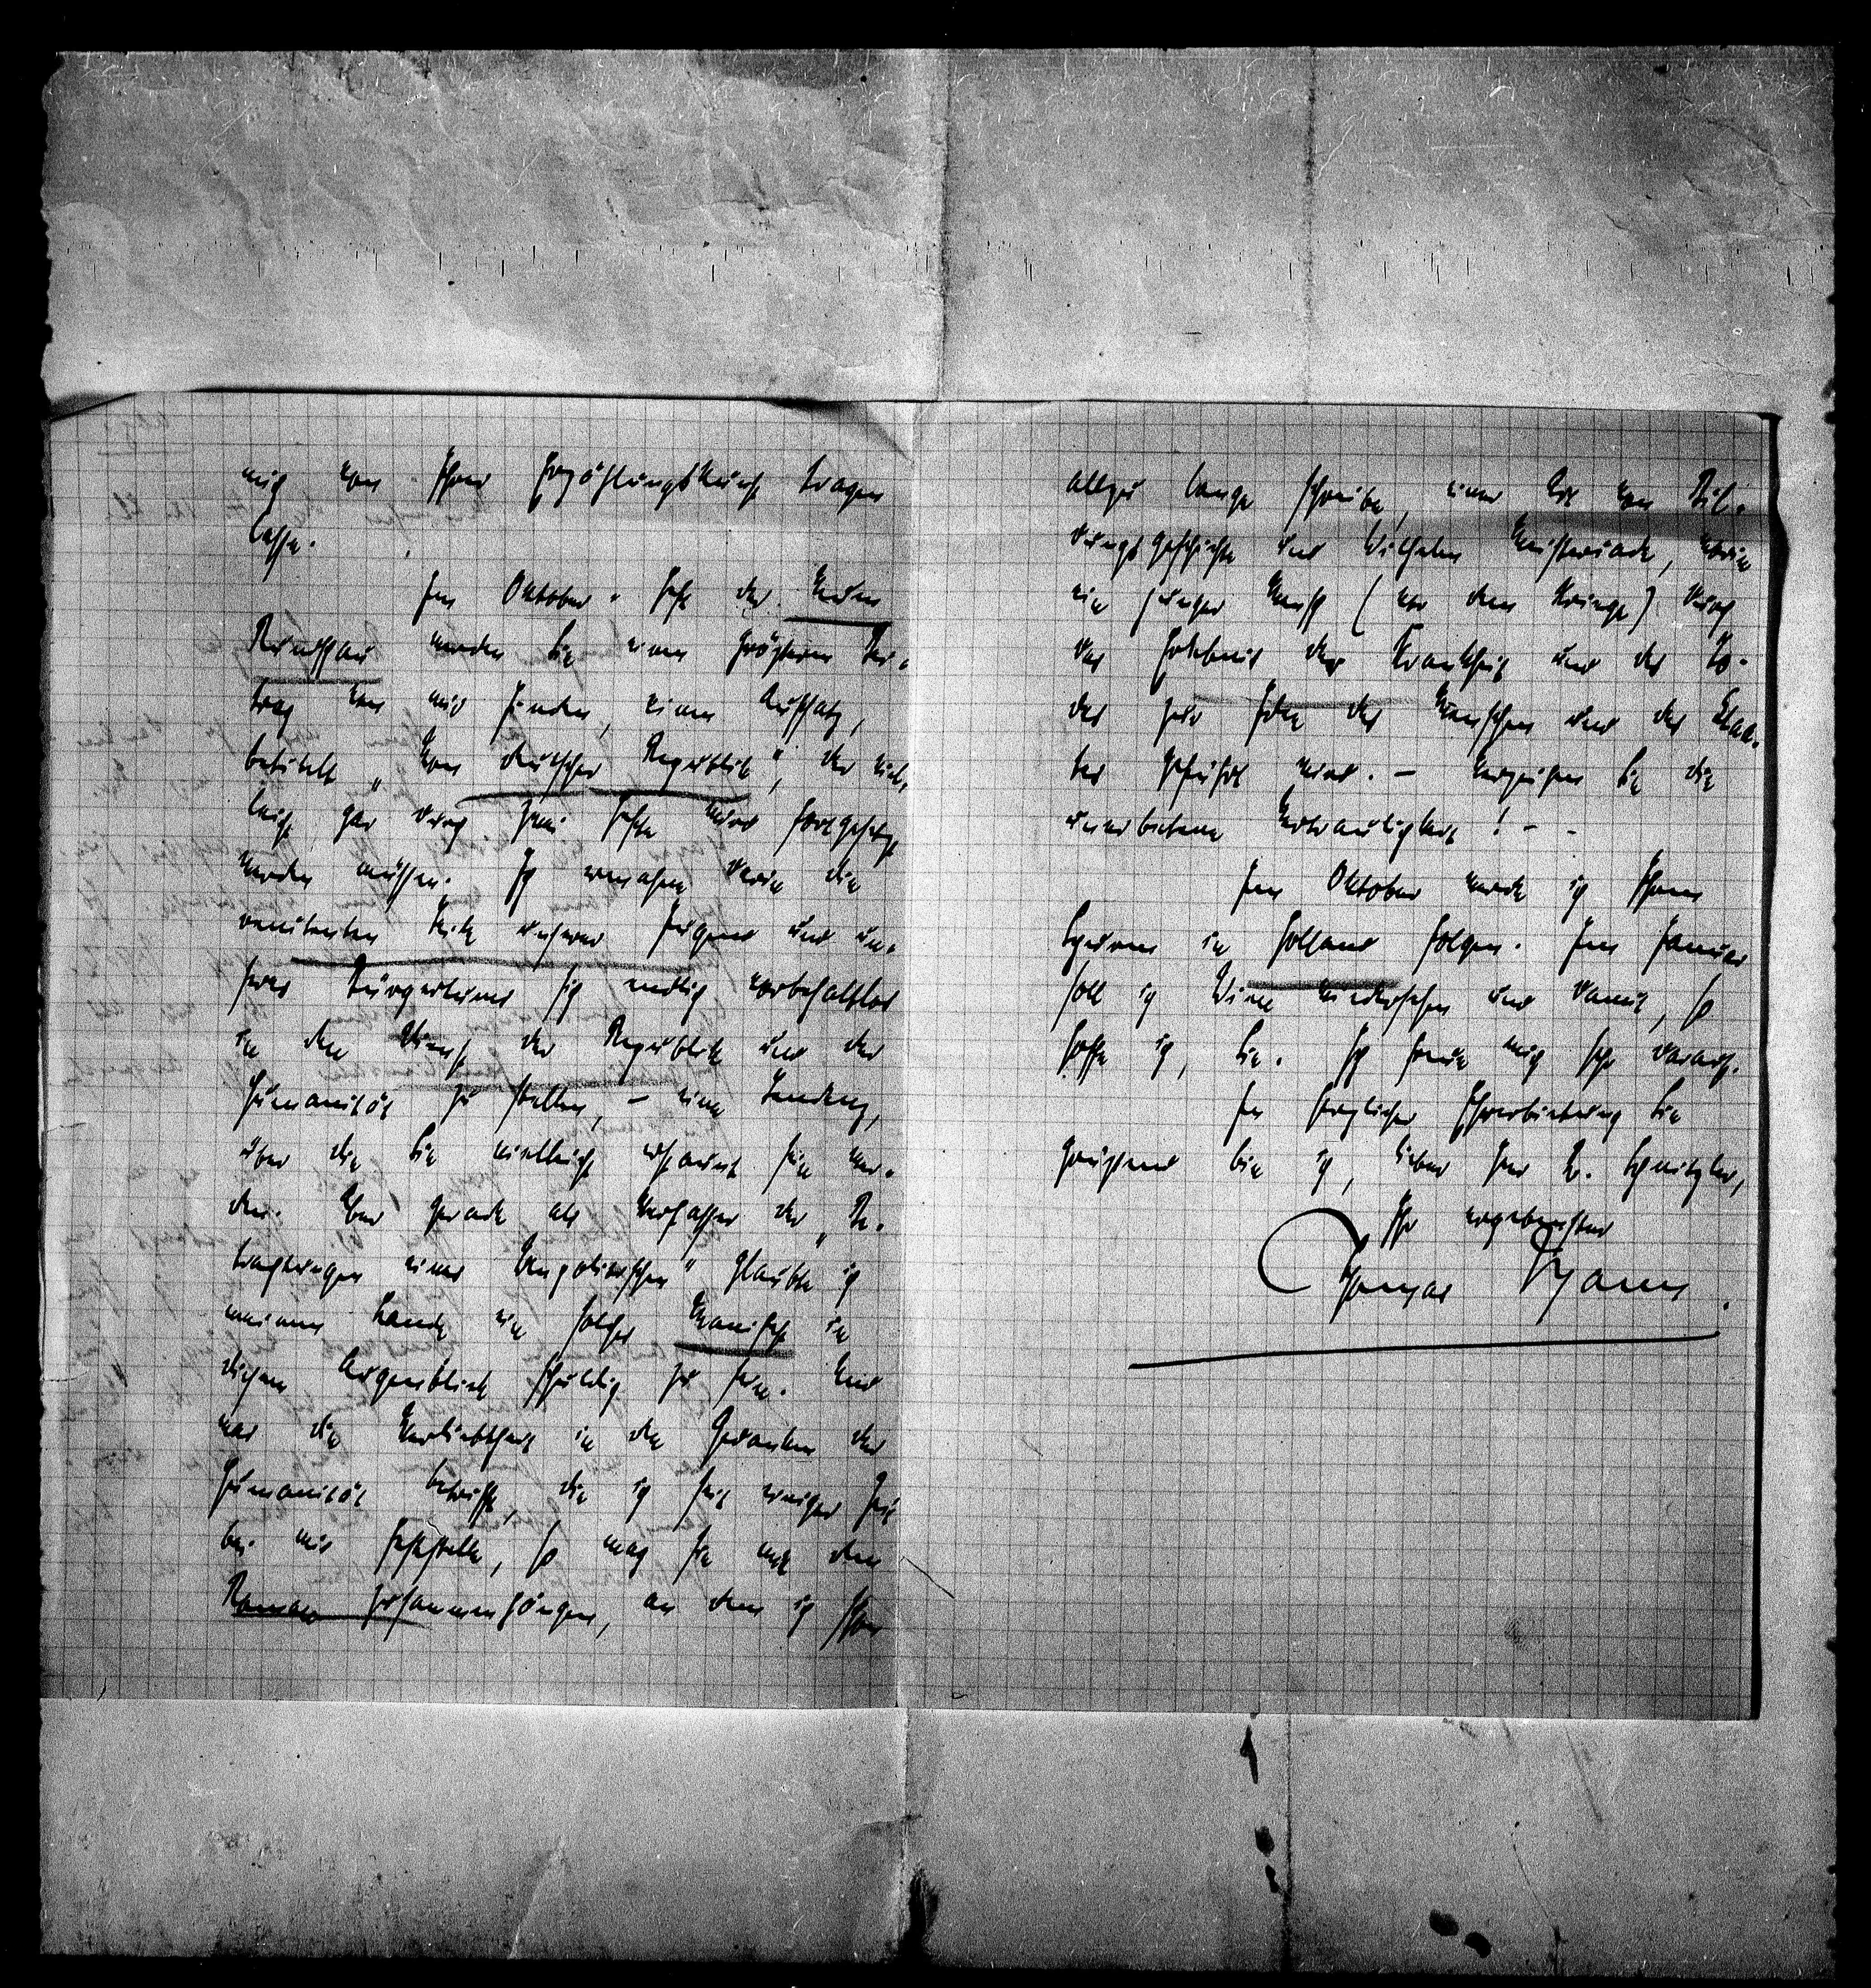 mich von Ihrer Erzählungskunst tragen
lasse.
Im Oktober-Heft der Neuen
Rundschau werden Sie einen größeren Bei-
trag von mir finden, einen Aufsatz,
betitelt „Von deutscher Republik“, der viel-
leicht gar durch zwei Hefte wird fortgesetzt
werden müssen. Ich ermahne darin die
renitenten Teile unserer Jugend und un-
seres Bürgertums sich endlich vorbehaltlos
in den Dienst der Republik und der
Humanität zu stellen, – eine Tendenz,
über die Sie vielleicht erstaunt sein wer-
den. Aber gerade als Verfasser der „Be-
trachtungen eines Unpolitischen“ glaubte ich
meinem Lande ein solches Manifest in
diesem Augenblick schuldig zu sein. Und
was die Verliebtheit in den Gedanken der
Humanität betrifft, die ich seit einiger Zeit
bei mir feststelle, so mag sie mit dem
Roman zusammenhängen, an dem ich schon
allzu lange schreibe, einer Art von Bil-
dungsgeschichte und Wilhelm Meisteriade, worin
ein junger Mensch (vor dem Kriege) durch
das Erlebnis der Krankheit und des To-
des zur Idee des Menschen und des Staa-
tes geführt wird. – Verzeihen Sie die
unerbetene Vertraulichkeit! – –
Im Oktober werde ich Ihren
Spuren in Holland folgen. Im Januar
soll ich Wien wiedersehen und damit, so
hoffe ich, Sie. Ich freue mich sehr darauf.
In herzlicher Ehrerbietung Sie
grüßend bin ich, lieber Herr Dr. Schnitzler,
Ihr ergebenster
Thomas Mann.